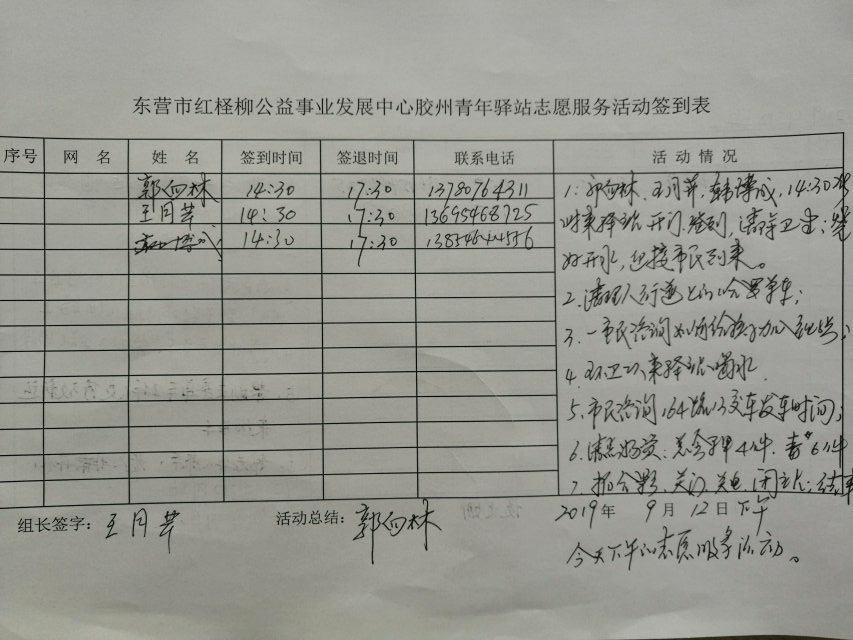 东营市红柽柳公益事业发展中心胶州青年驿站志愿服务活动签到表
序号 网 名 姓 名 签到时间 签退时间 联系电话 活 动 情 况
郭向林 14:30 17:30 13780764311
王月芹 14:30 17:30 13695468725
博成 14:30 17:30
1、郭向林、王月芹、韩博成,14:30准
时来驿站,开门、签到,清洁卫生;烧
好开水,迎接市民到来。
2、清理人行道上的哈罗单车;
3、一市民咨询如何给孩子加入
4、环卫工来驿站喝水
5、市民咨询164路公交车发车时间;
6、清点物资:
7、拍合影、关门、关电、闭 ;结束
组长签字:王月芹 活动总结:郭向林 2019年 9月 12日下午
今天下午的志愿服务活动。